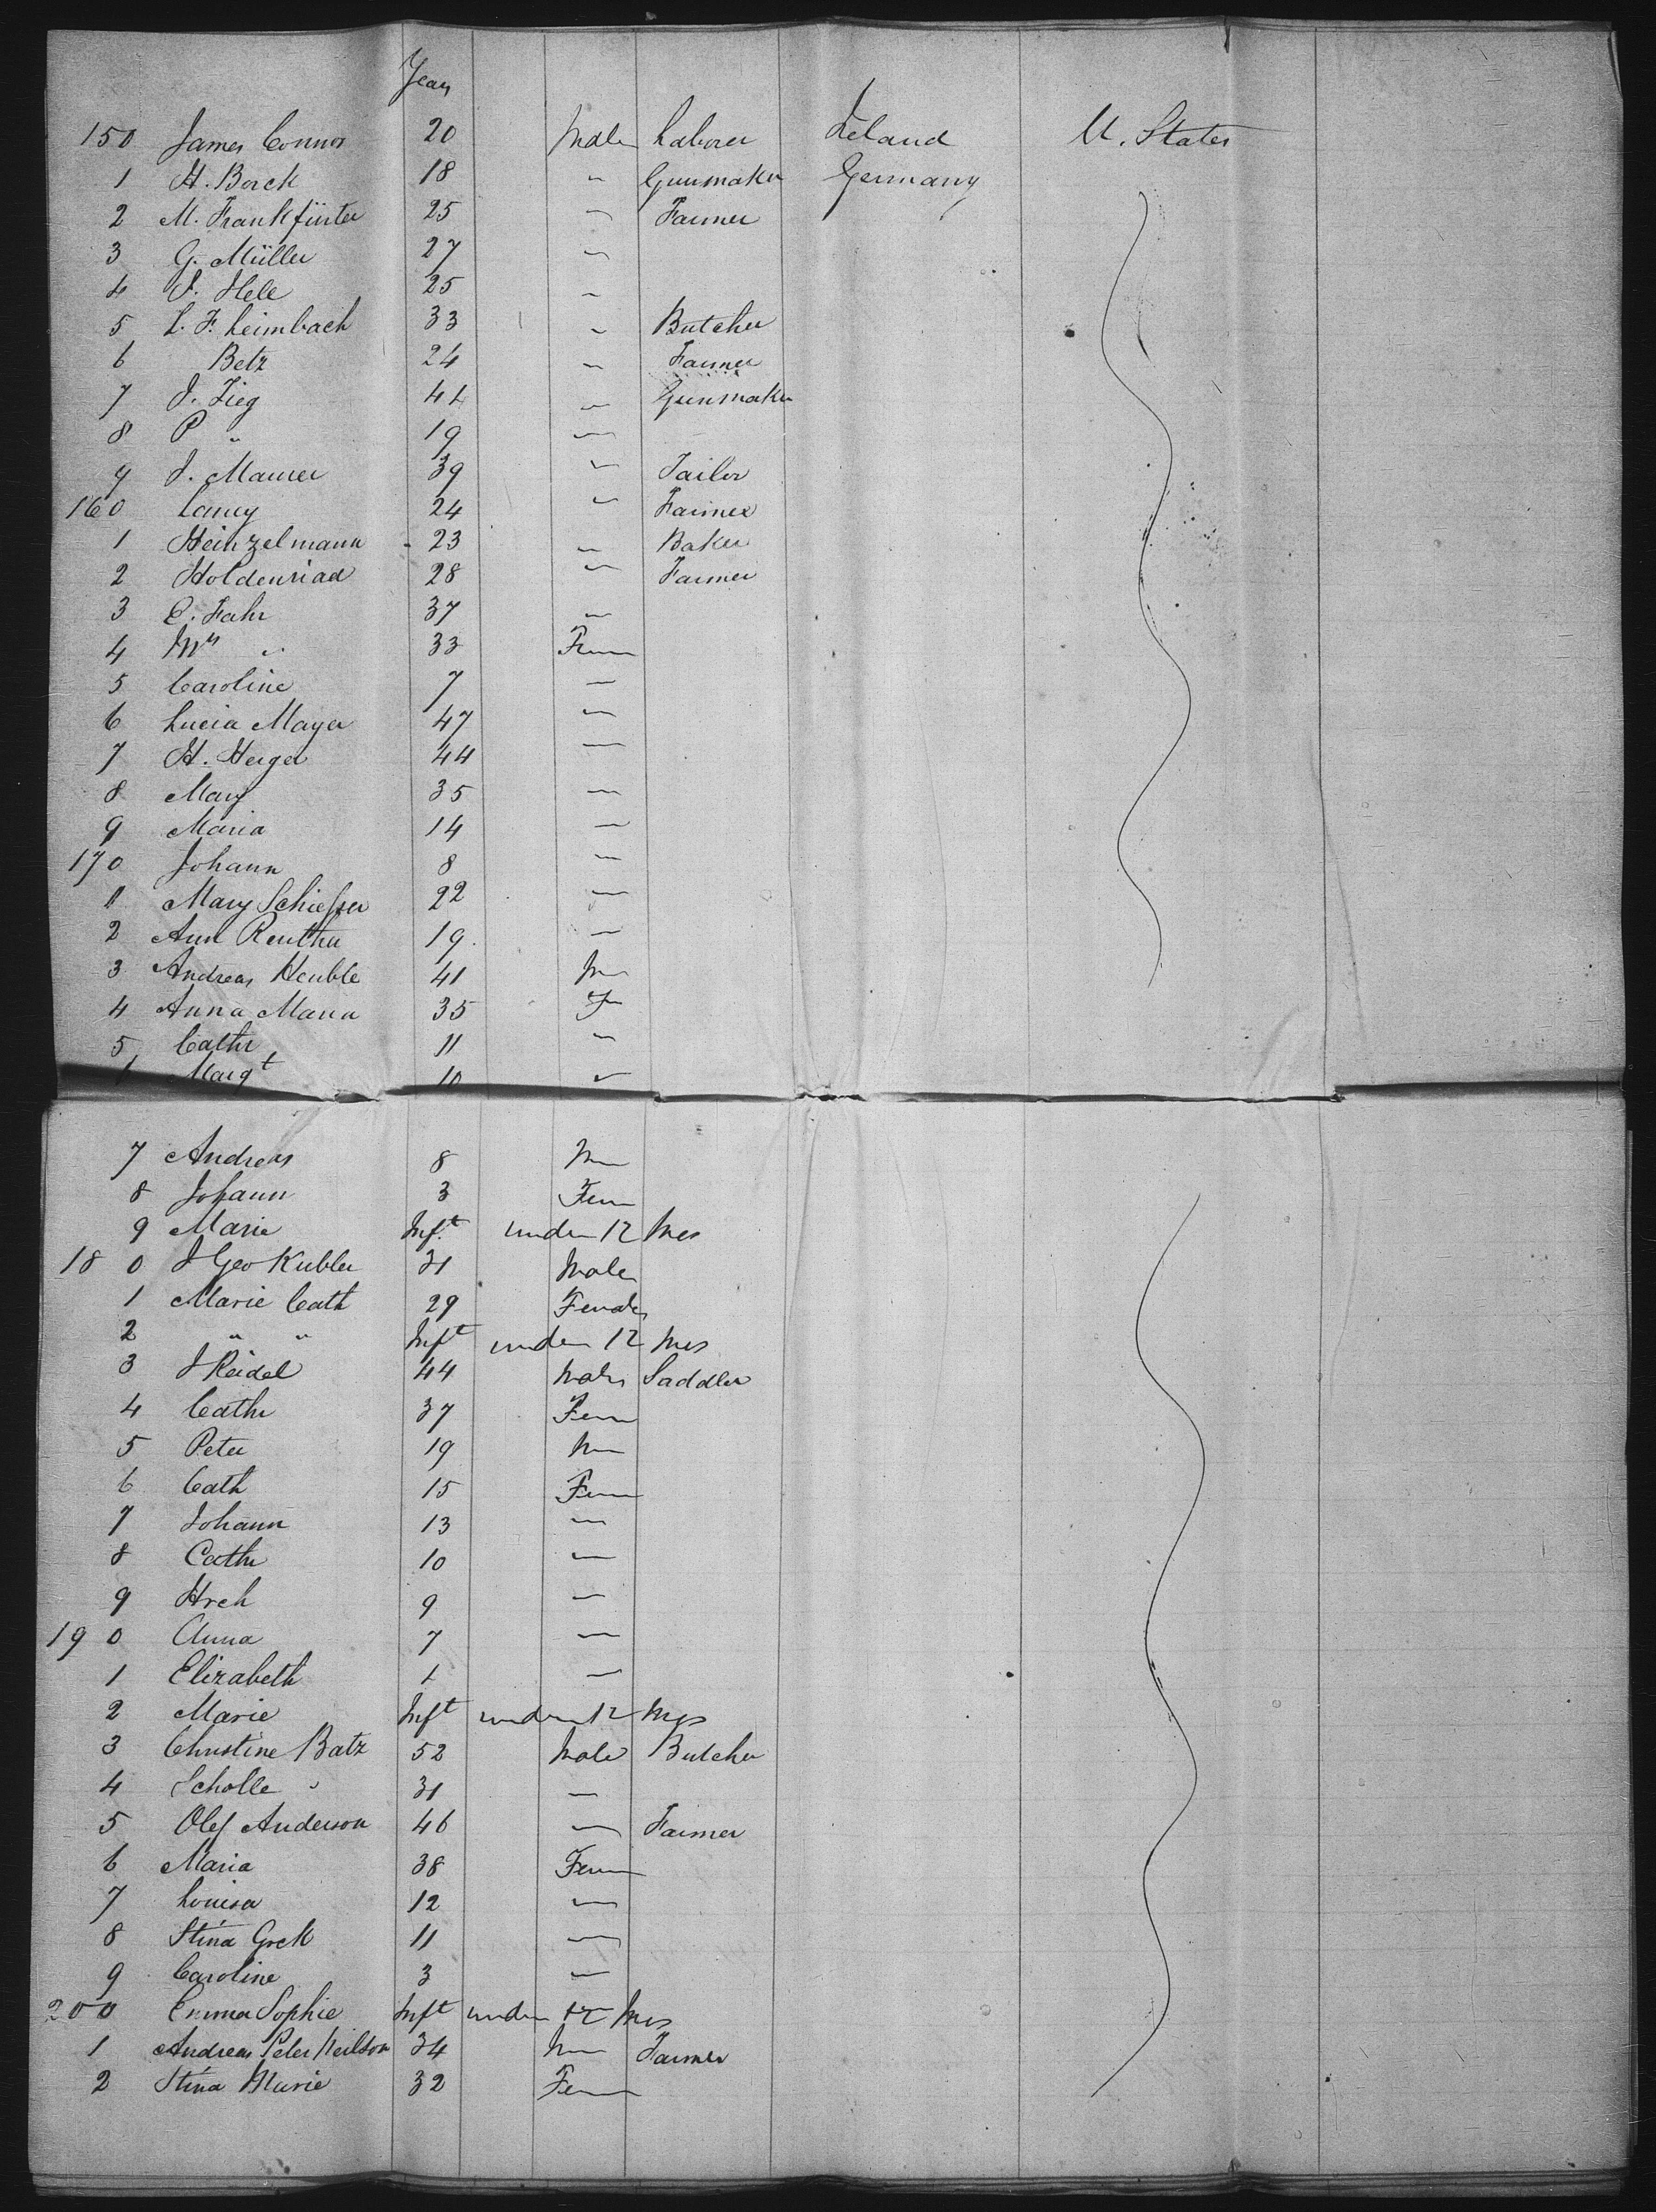 Years
150 James Connor 20 Male Laborer Ireland U. States
1 H. Borck 18 " Gunmaker Germany
2 M. Frankfürter 25 " Farmer
3 G. Müller 27 "
4 J. Hele 25 "
5 L. F. Leimbach 33 " Butcher
6 Betz 24 " Farmer
7 J. Zieg 44 " Gunmaker
8 P " 19 "
9 J. Maurer 39 " Tailor
160 24 " Farmer
1 Heinzelmann 23 " Baker
2 Holdenriad 28 " Farmer
3 C. Fahr 37 "
4 Mrs " 33 Fem
5 Caroline 7 "
6 Lucia Mayer 47 "
7 H. Herger 44 "
8 Mary 35 "
9 Maria 14 "
170 Johann 8 "
1 Mary Schiesser 22 "
2 Ann 19 "
3 Andreas Keuble 41 M
4 Anna Maria 35 F
5 Cathe 11 "
Margt 10 "
7 Andreas 8 M
8 Johann 3 Fem
9 Marie Inft under 12 Mos
180 J Geo Kubler 31 Male
1 Marie Cath 29 Female
2 " " Inft under 12 Mos
3 J Reidel 44 Male Saddler
4 Cathe 37 Fem
5 Peter 19 M
6 Cath 15 Fem
7 Johann 13 "
8 Cathe 10 "
9 Hrch 9 "
190 Anna 7 "
1 Elizabeth "
2 Marie Inft under 12 Mos
3 Christine Batz 52 Male Butcher
4 Scholle " 31 "
5 Olef Anderson 46 " Farmer
6 Maria 38 Fem
7 Louisa 12 "
8 Stina Grek 11 "
9 Caroline 3 "
200 Emma Sophie Inft under 12 Mos
1 Andreas Peter Neilson 34 M Farmer
2 Stina Marie 32 Fem